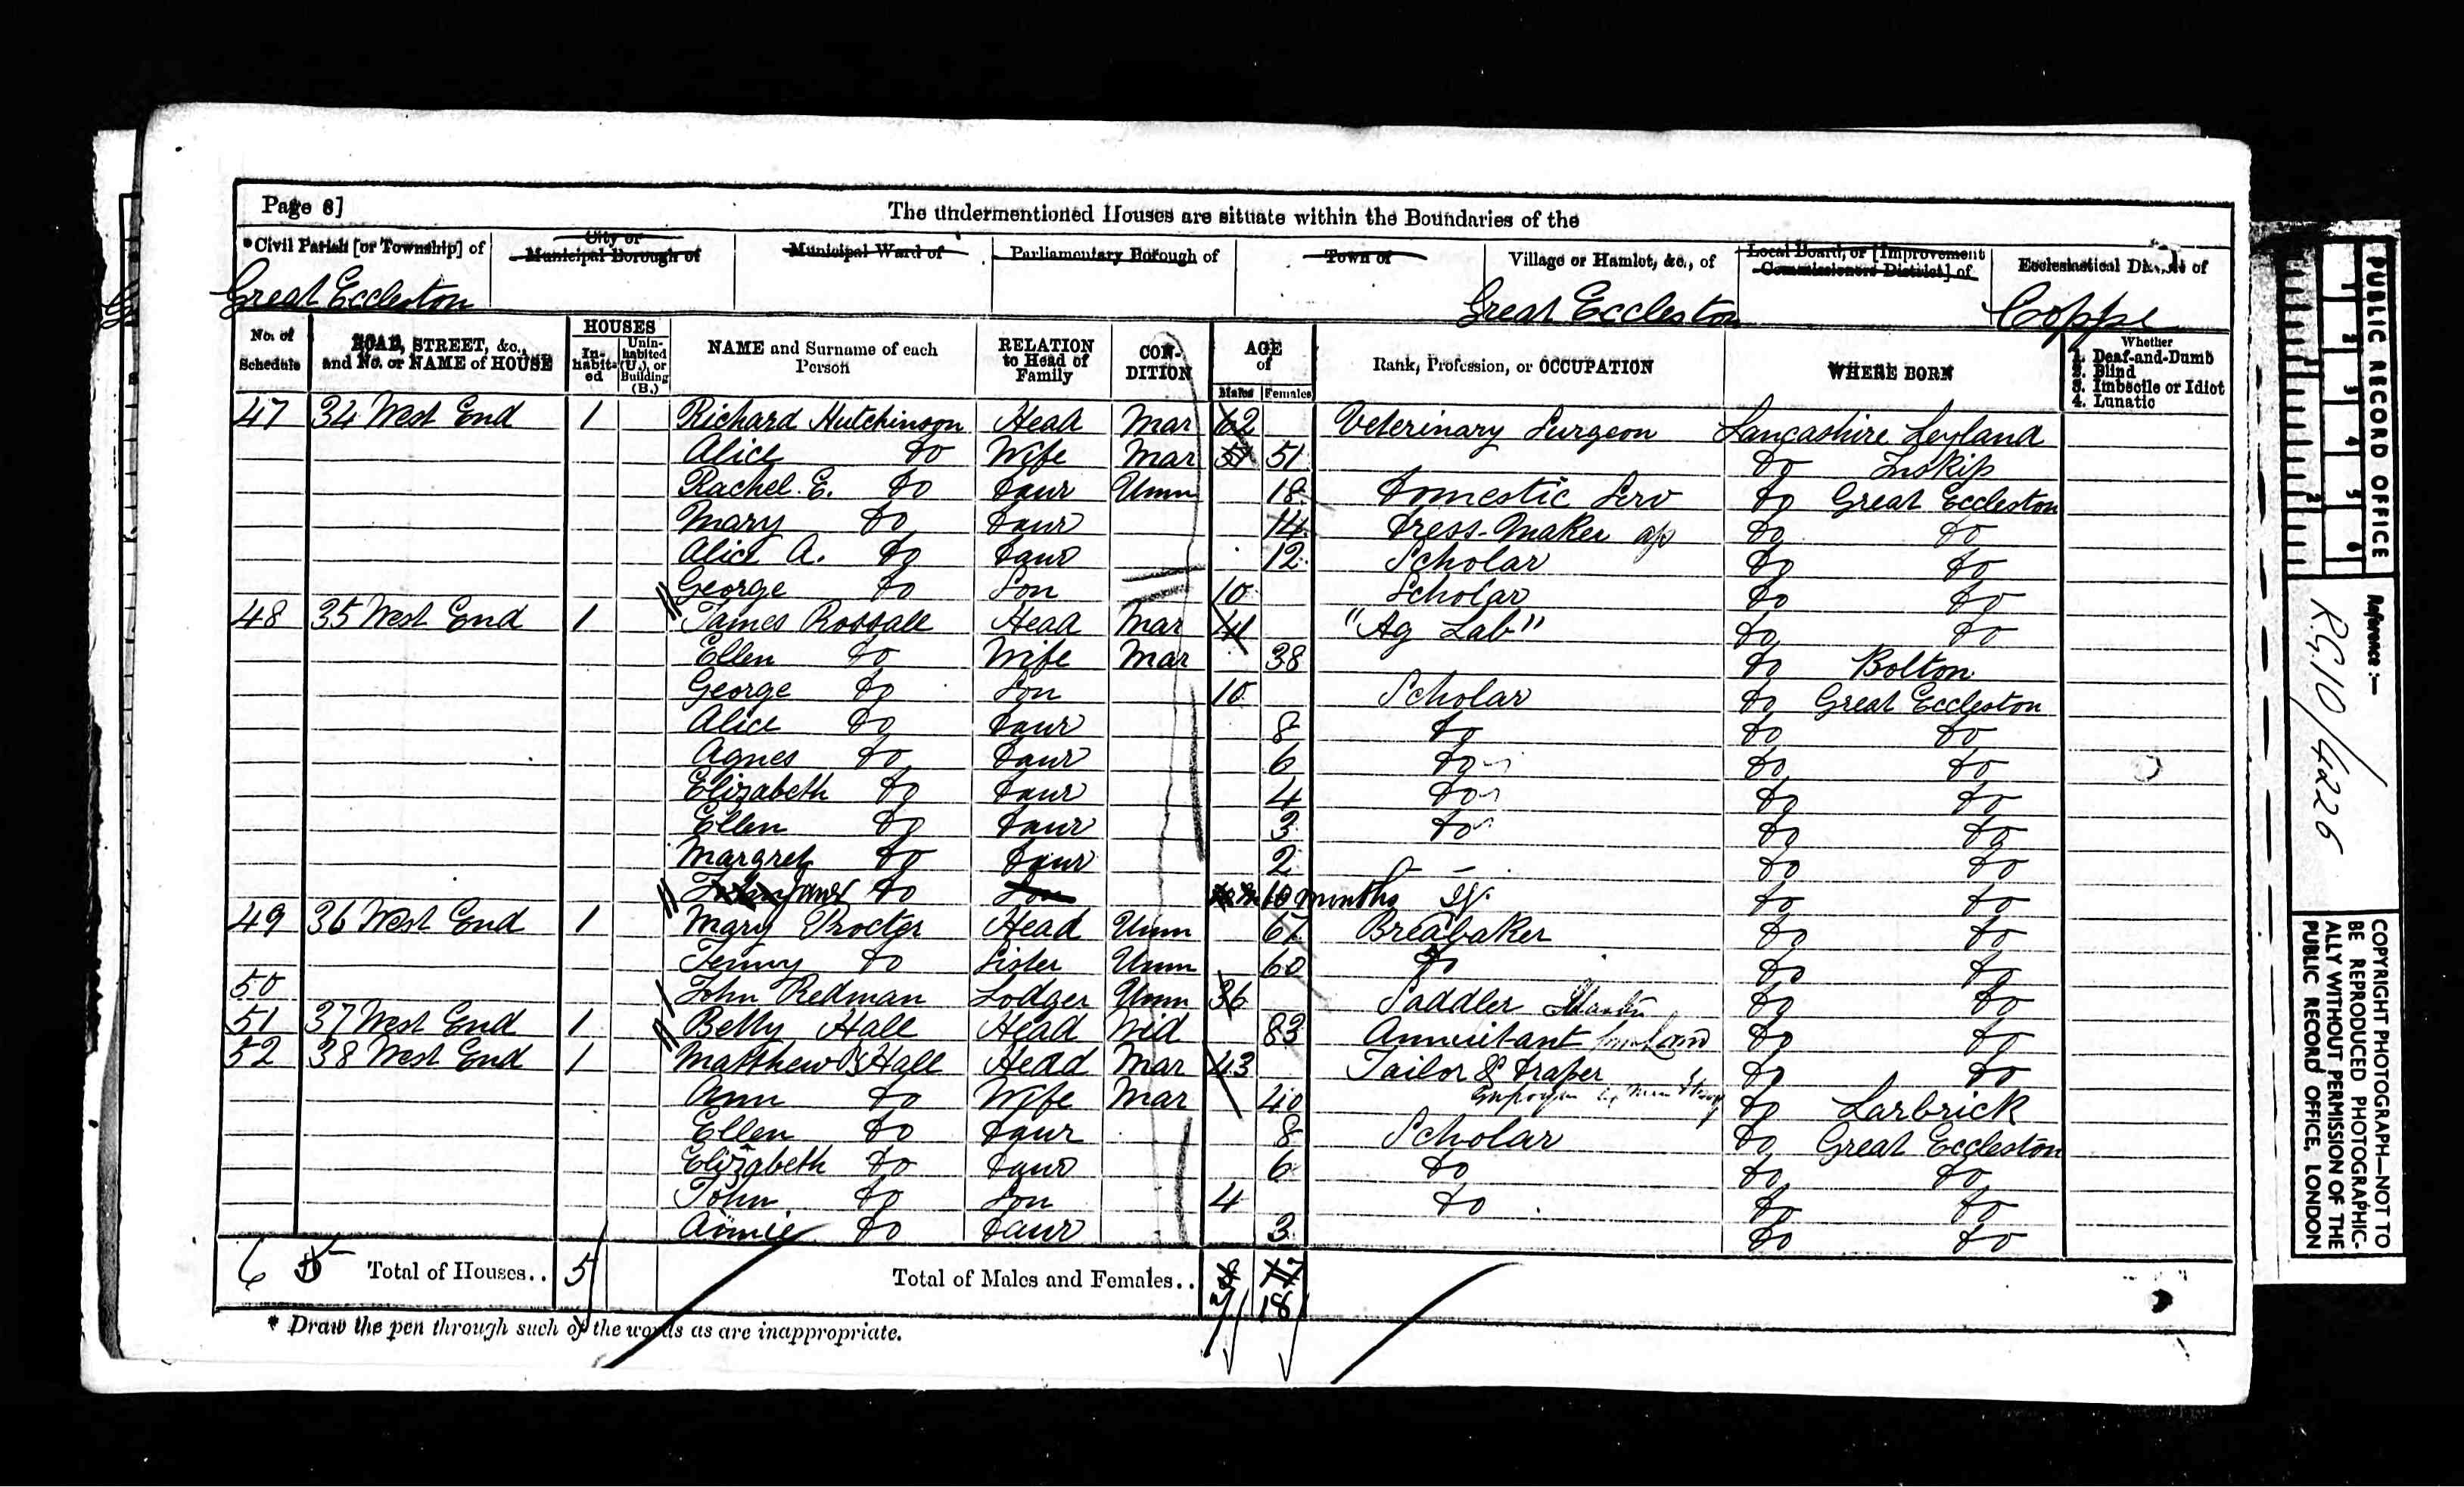 Page 8]
The undermentioned Houses are situate within the Boundaries of the
*Civil Parish [or Township] of City or Municipal Borough of Municipal Ward of Parliamentary Borough of Town of Village or Hamlet, &c., of Local Board, or [Improvement Commissioners District] of Ecclesiastical District of
Great Eccleston Great Eccleston Copp
No. of Schedule ROAD, STREET, &c., and No. or NAME of HOUSE HOUSES In-habit-ed Unin-habited (U.), or Building (B.) NAME and Surname of each Person RELATION to Head of Family CON-DITION AGE of Males Females Rank, Profession, or OCCUPATION WHERE BORN Whether 1. Deaf-and-Dumb 2. Blind 3. Imbecile or Idiot 4. Lunatic
47 34 West End 1 Richard Hutchinson Head Mar 62 Veterinary Surgeon Lancashire Leyland
Alice Do Wife Mar 51 Do Inskip
Rachel E. Do Daur Unm 18 Domestic Serv Do Great Eccleston
Mary Do Daur 14 Dress-Maker ap Do Do
Alice A. Do Daur 12 Scholar Do Do
George Do Son 10 Scholar Do Do
48 35 West End 1 James Rossall Head Mar 41 "Ag Lab" Do Do
Ellen Do Wife Mar 38 Do Bolton
George Do Son 10 Scholar Do Great Eccleston
Alice Do Daur 8 Do Do Do
Agnes Do Daur 6 Do Do Do
Elizabeth Do Daur 4 Do Do Do
Ellen Do Daur 3 Do Do Do
Margret Do Daur 2 Do Do
Do Son 10 months Do Do
49 36 West End 1 Mary Procter Head Unm 67 Breabaker Do Do
Jenny Do Sister Unm 60 Do Do Do
50 John Redman Lodger Unm 36 Saddler Do Do
51 37 West End 1 Betty Hall Head Wid 83 Annuitant Do Do
52 38 West End 1 Matthew Hall Head Mar 43 Tailor & Draper Do Do
Ann Do Wife Mar 40 Do Larbrick
Ellen Do Daur 8 Scholar Do Great Eccleston
Elizabeth Do Daur 6 Do Do Do
John Do Son 4 Do Do Do
Annie Do Daur 3 Do Do
6 Total of Houses.. 5 Total of Males and Females.. 17
18
* Draw the pen through such of the words as are inappropriate.
PUBLIC RECORD OFFICE
1 2 3 4 5 6
Reference :-
R.G.10/4226
COPYRIGHT PHOTOGRAPH—NOT TO
BE REPRODUCED PHOTOGRAPHIC-
ALLY WITHOUT PERMISSION OF THE
PUBLIC RECORD OFFICE, LONDON